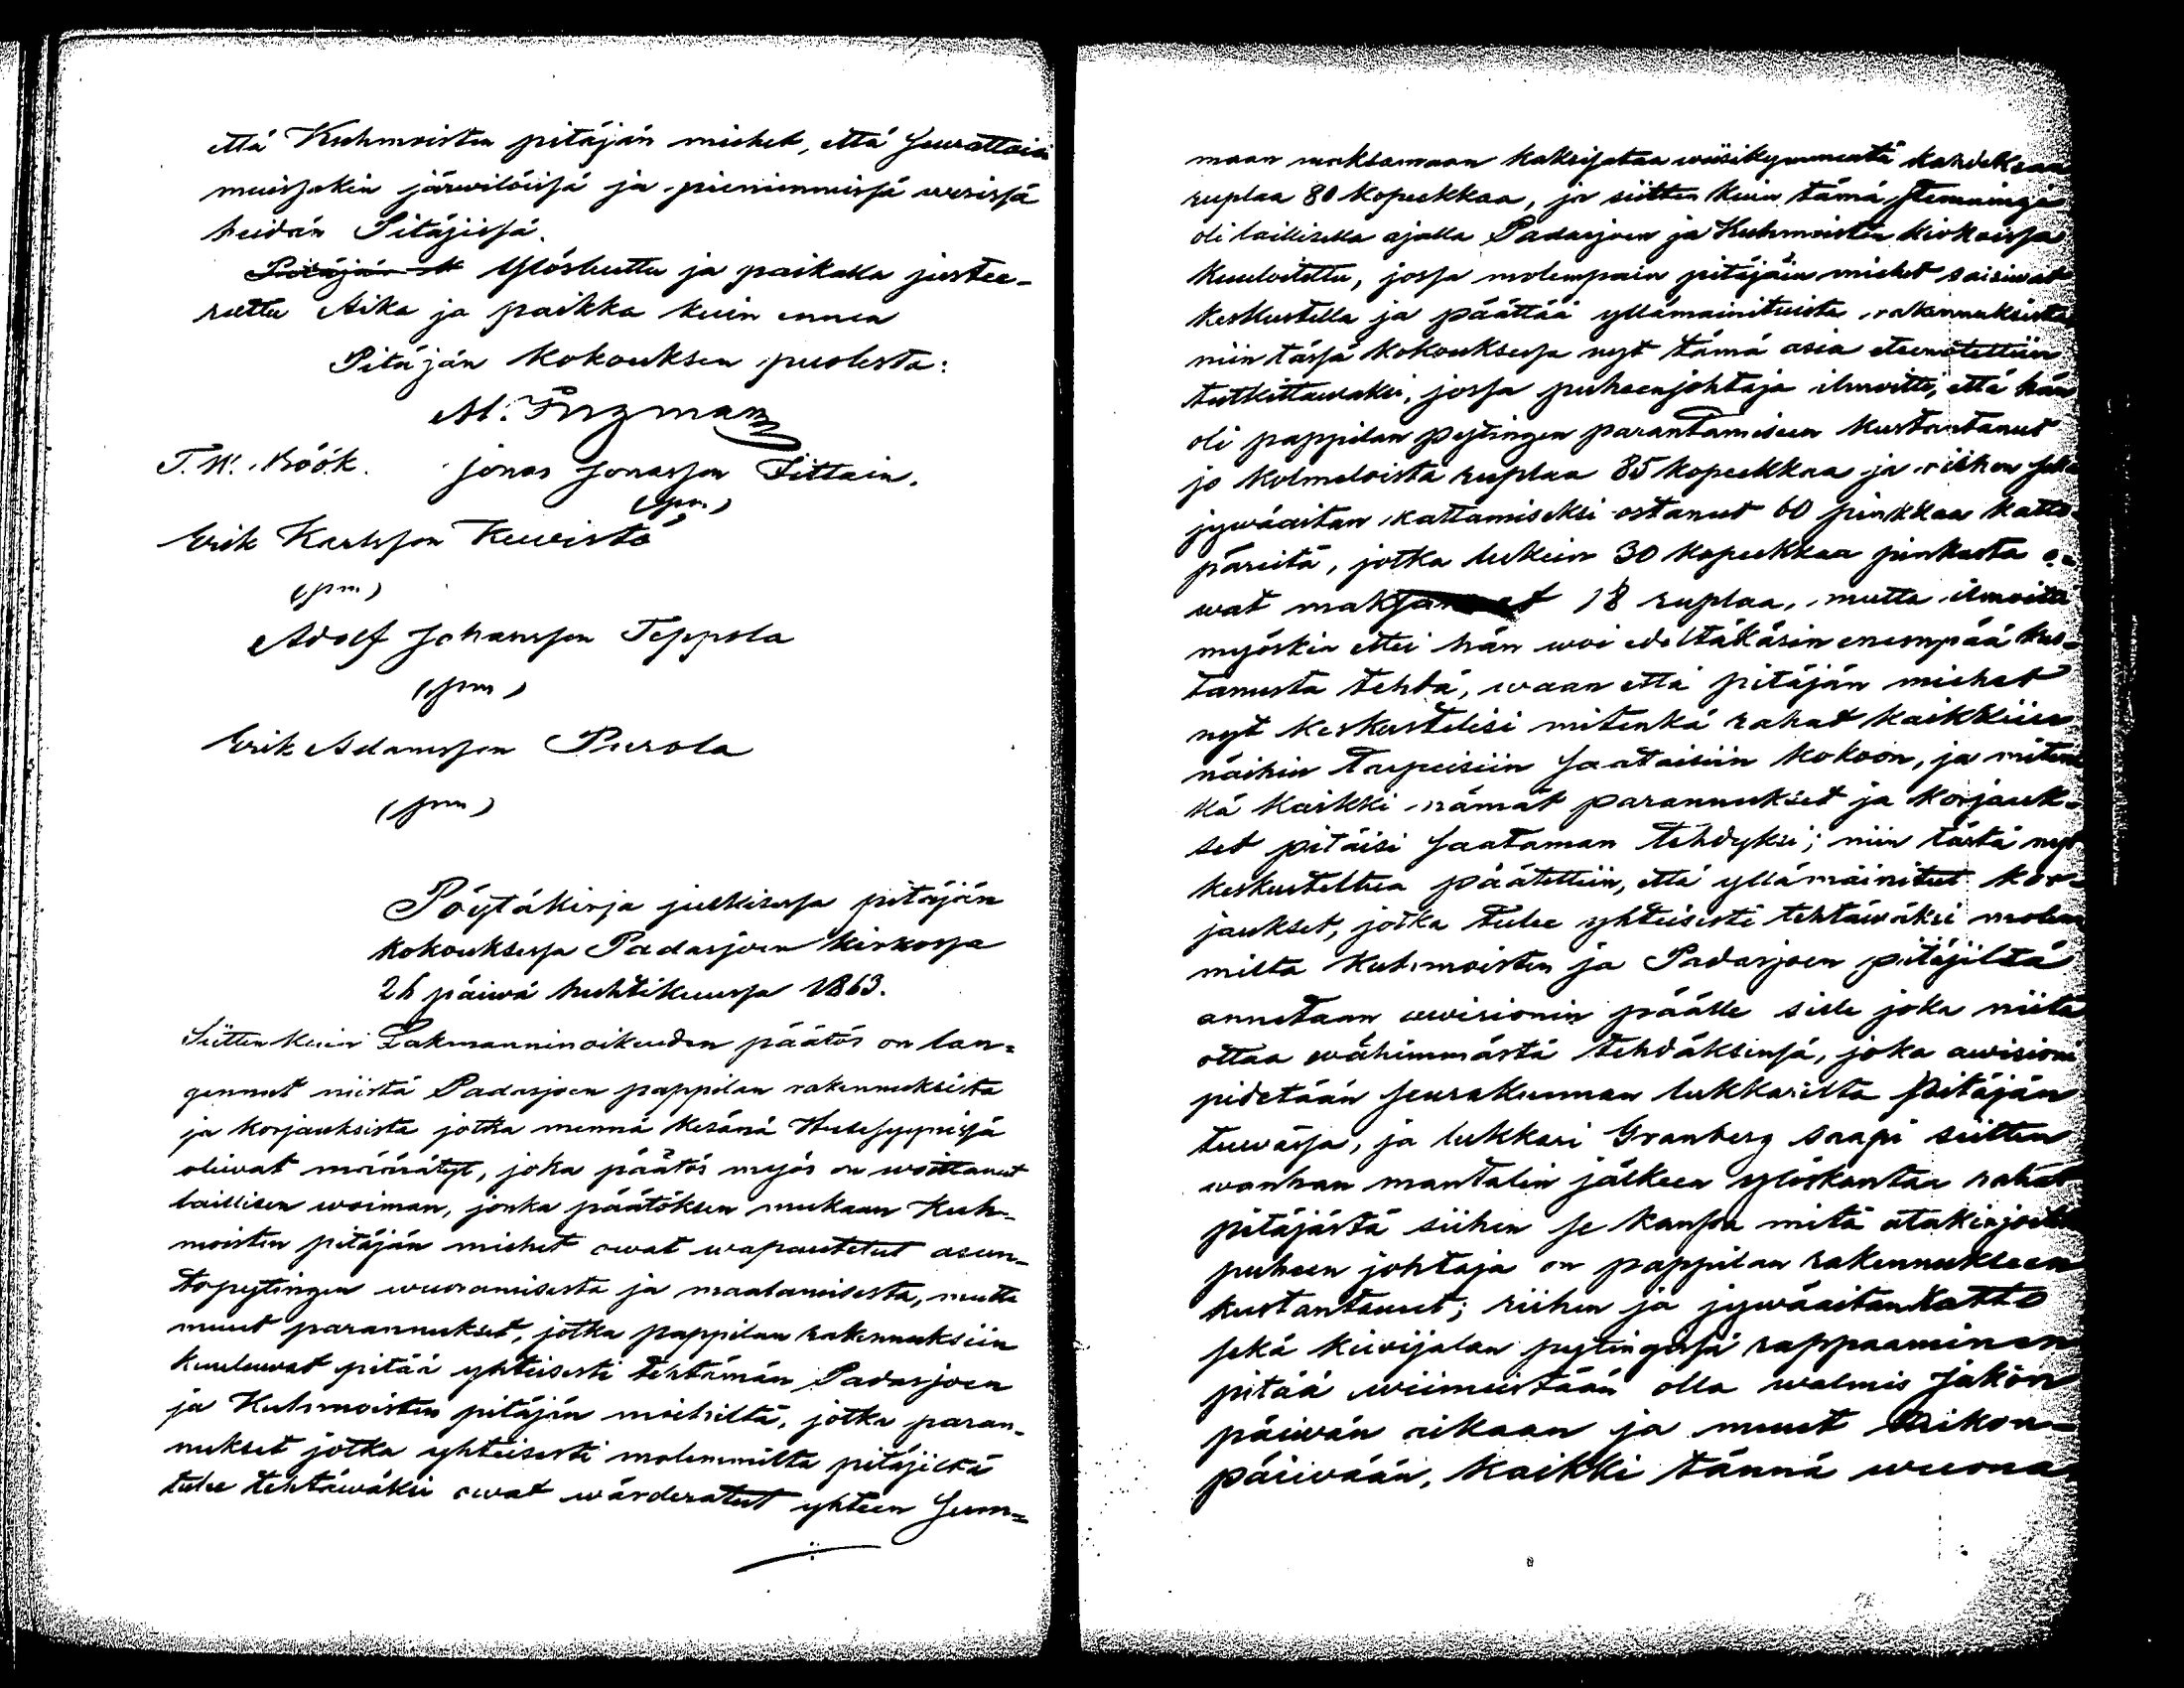 että Kuhmoisten pitäjän miehet, että seurattaisi
muissakin järwilöissä ja pienimmissä wesissä
heidän Pitäjissä.
Pitäjän k Ylösluettu ja paikalla justee-
rattu Aika ja paikka kuin ennen
Pitäjän kokouksen puolesta:
M. Ingman
T. W. Böök. Jonas Jonasson Tittain.
(pm)
Erik Karlsson Kuwisto
(pm)
Adolf Johansson Seppola
(pm)
Erik Adamsson Purola
(pm)
Pöytäkirja julkisessa pitäjän
kokouksessa Padasjoen kirkossa
26 päiwä huhtikuussa 1863.
Siitten kuin Lakmanninoikeuden päätös on lan-
gennut niistä Padasjoen pappilan rakennuksista
ja korjauksista jotka mennä kesänä Husesyynissä
oliwat määrätyt, joka päätös myös on woittanut
laillisen woiman, jonka päätöksen mukaan Kuh-
moisten pitäjän miehet owat wapautetut asun-
topytingen wuoramisesta ja maalamisesta, mutta
muut parannukset, jotka pappilan rakennuksiin
kuuluwat pitää yhteisesti tehtämän Padasjoen
ja Kuhmoisten pitäjän miehiltä, jotka paran-
nukset jotka yhteisesti molemmilta pitäjiltä
tulee tehtäwäksi owat wärderatut yhteen sum-
maan maksamaan kaksisataa wiisikymmentä kahdeksan
ruplaa 80 kopeekkaa, ja siitten kuin tämä stemningi
oli laillisella ajalla Padasjoen ja Kuhmoisten kirkoissa
kuulutettu, jossa molempain pitäjäin miehet saisiwat
keskustella ja päättää yllämainituista rakennuksista
niin tässä kokouksessa nyt tämä asia eteenotettiin
tutkittawaksi, jossa puheenjohtaja ilmoitti, että hän
oli pappilan pytingen parantamiseen kustantanut
jo kolmetoista ruplaa 85 kopeekkaa ja riihen sekä
jywäaitan kattamiseksi ostanut 60 pinkkaa katto-
päreitä, jotka lukein 30 kopeekkaa pinkasta o-
wat maksaneet 18 ruplaa, mutta ilmoitti
myöskin ettei hän woi edeltäkäsin enempää kus-
tanusta tehdä, waan että pitäjän miehet
nyt keskustelisi mitenkä rahat kaikkiin
näihin tarpeisiin saataisiin kokoon, ja miten
kä kaikki nämät parannukset ja korjauk-
set pitäisi saataman tehdyksi; niin tästä nyt
keskusteltua päätettiin, että yllämainitut kor-
jaukset, jotka tulee yhteisesti tehtäwäksi molem
milta Kuhmoisten ja Padasjoen pitäjiltä
annetaan uwisionin päälle sille joka niitä
ottaa wähimmästä tehdäksensä, joka awisioni
pidetään seurakunnan lukkarilta pitäjän
tuwassa, ja lukkari Granberg saapi siitten
wanhan mantalin jälkeen ylöskantaa rahat
pitäjästä siihen se kanssa mitä
puheen johtaja on pappilan rakennukseen
kustantanut; riihen ja jywäaitan katto
sekä kiwijalan pytingissä rappaaminen
pitää wiimeistään olla walmis Jakon
päiwän aikaan ja muut Mikon-
päiwään, kaikki tännä wuona.